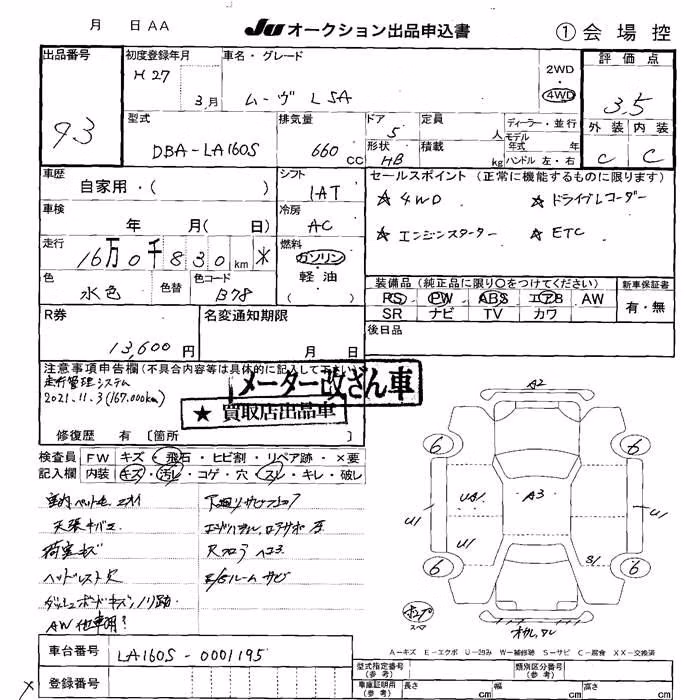 月 日 AA JU オークション出品申込書 ① 会場控
出品番号 93
初度登録年月 H27 3月
車名・グレード ムーヴ L SA
2WD・4WD
評価点 3.5
外装 C 内装 C
型式 DBA-LA160S
排気量 660 CC
ドア 5
形状 HB
定員 人
積載 kg
ディーラー・並行
モデル年式 年
ハンドル 左・右
車歴 自家用・( )
シフト IAT
セールスポイント (正常に機能するものに限ります)
☆ 4WD ☆ ドライブレコーダー
☆ エンジンスターター ☆ ETC
車検 年 月( 日)
冷房 AC
走行 16万0千830km *
燃料 ガソリン・軽油 ( )
色 水色 色替 色コード B78
装備品 (純正品に限り○をつけてください)
PS PW ABS エアB AW
SR ナビ TV カワ
新車保証書 有・無
R券 13,600円
名変通知期限 月 日
後日品
注意事項申告欄(不具合内容等は具体的に記入して下さい)
走行管理システム
2021.11.3(167,000km)
メーター改ざん車
★ 買取店出品車
修復歴 有 〔箇所 〕
検査員 FW キズ・飛石・ヒビ割・リペア跡・×要
記入欄 内装 キズ・汚レ・コゲ・穴・スレ・キレ・破レ
室内ペット毛、ニオイ
天張キバミ
荷室キズ
ヘッドレスト欠
ダッシュボードキズ、ノリ跡
AW 他車用?
下廻りサビ
Rフロア ヘコミ
E/Gルーム サビ
A2
6 6
U1 UA1 A3 U1
U1 S1
6 6
A-キズ E-エクボ U-凹み W-補修跡 S-サビ C-腐食 XX-交換済
車台番号 LA160S-0001195
登録番号
型式指定番号(参考) 類別区分番号(参考)
車庫証明用(参考) 長さ cm 幅 cm 高さ cm